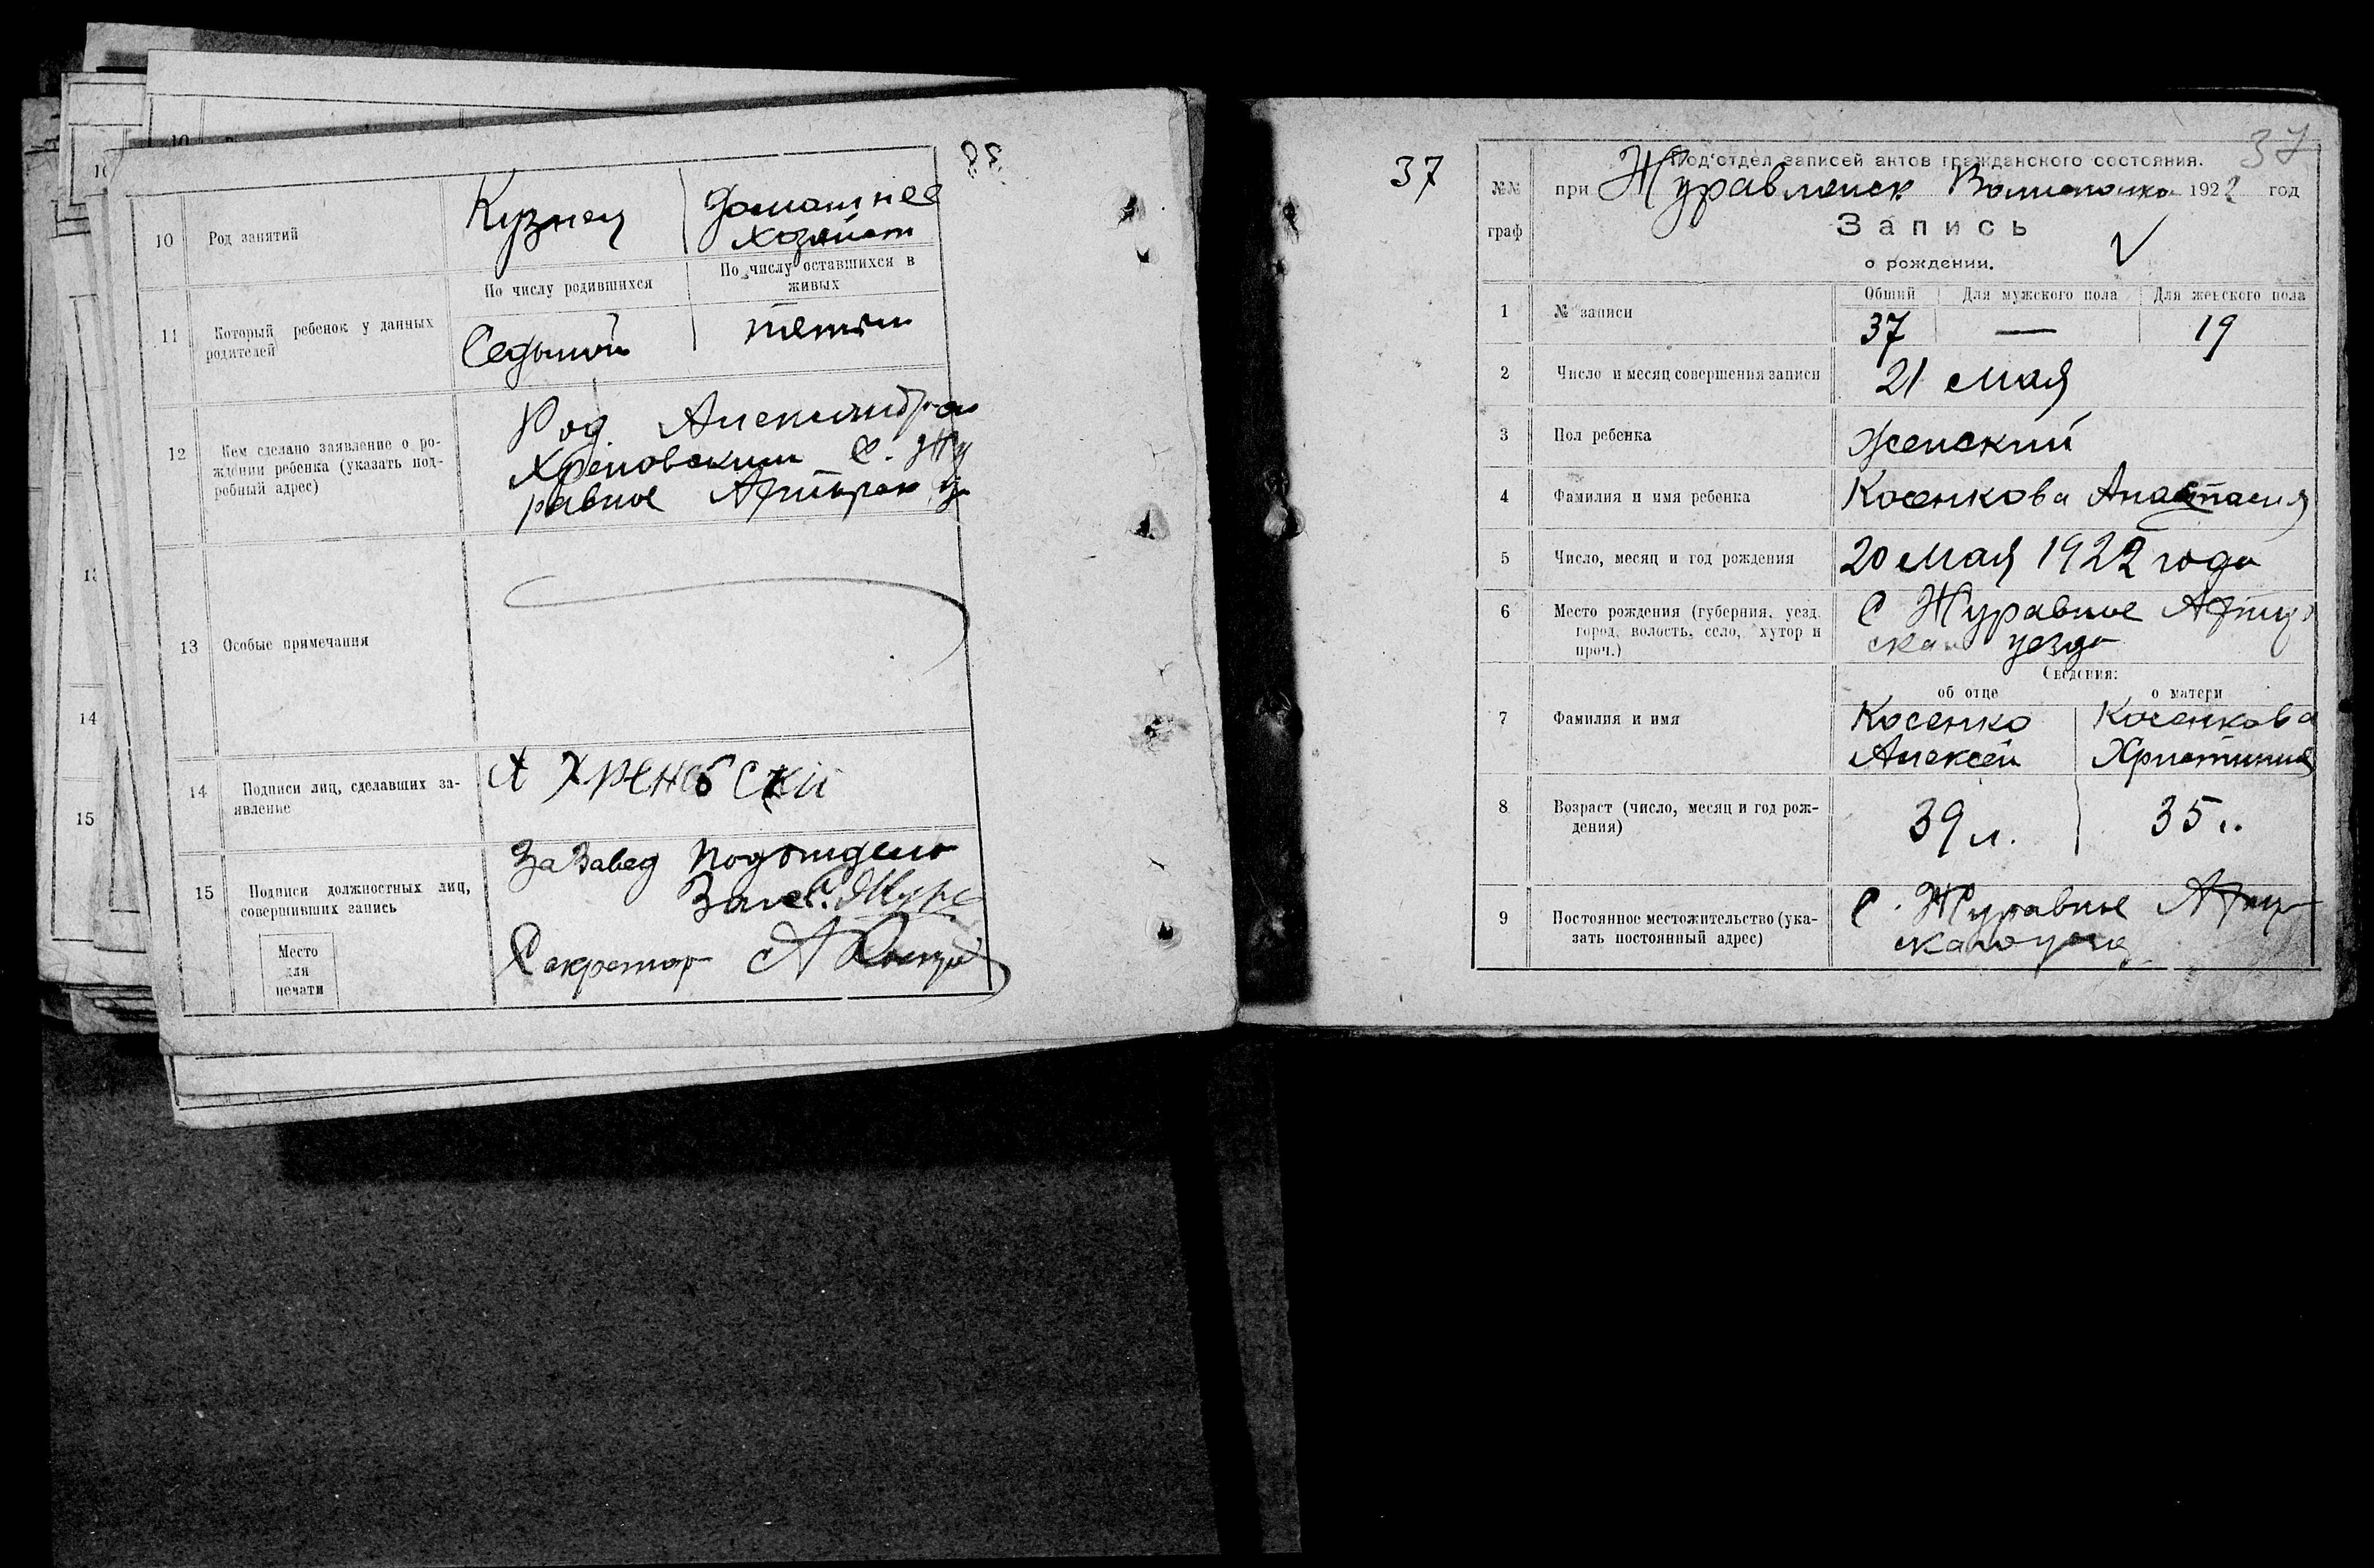 10 Род занятий
Кузнец
Домашнее
Хозяйст
11 Который ребенок у данных
родителей
По числу родившихся
Седьмой
По числу оставшихся в
живых
12 Кем сделано заявление о ро-
ждении ребенка (указать под-
робный адрес)
Род. Александром
Хреновским С. Жу
равное
13 Особые примечания
14 Подписи лиц, сделавших за-
явление
А ХРЕНОВСКИЙ
15 Подписи должностных лиц,
совершивших запись
За Завед Подотдело
Секретарь А
Место
для
печати
14
15
37
37
№№
граф
Под'отдел записей актов гражданского состояния.
при Журавленск 1922 год
Запись
о рождении.
1 № записи
Общий Для мужского пола Для женского пола
37 — 19
2 Число и месяц совершения записи
21 мая
3 Пол ребенка
Женский
4 Фамилия и имя ребенка
Косенкова Анастасия
5 Число, месяц и год рождения
20 мая 1922 года
6 Место рождения (губерния, уезд,
город, волость, село, хутор и
проч.)
С Журавное
уезда
Сведения:
об отце о матери
7 Фамилия и имя
Косенко
Алексей
Косенкова
Христиния
8 Возраст (число, месяц и год рож-
дения)
39 л.
35 л.
9 Постоянное местожительство (ука-
зать постоянный адрес)
С. Журавное